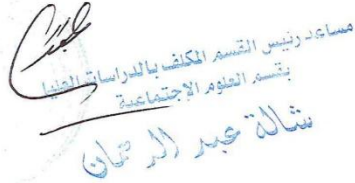 مساعد رئيس القسم المكلف بالدراسات العليا
بقسم العلوم الإجتماعية
شالة عبد الرحمان